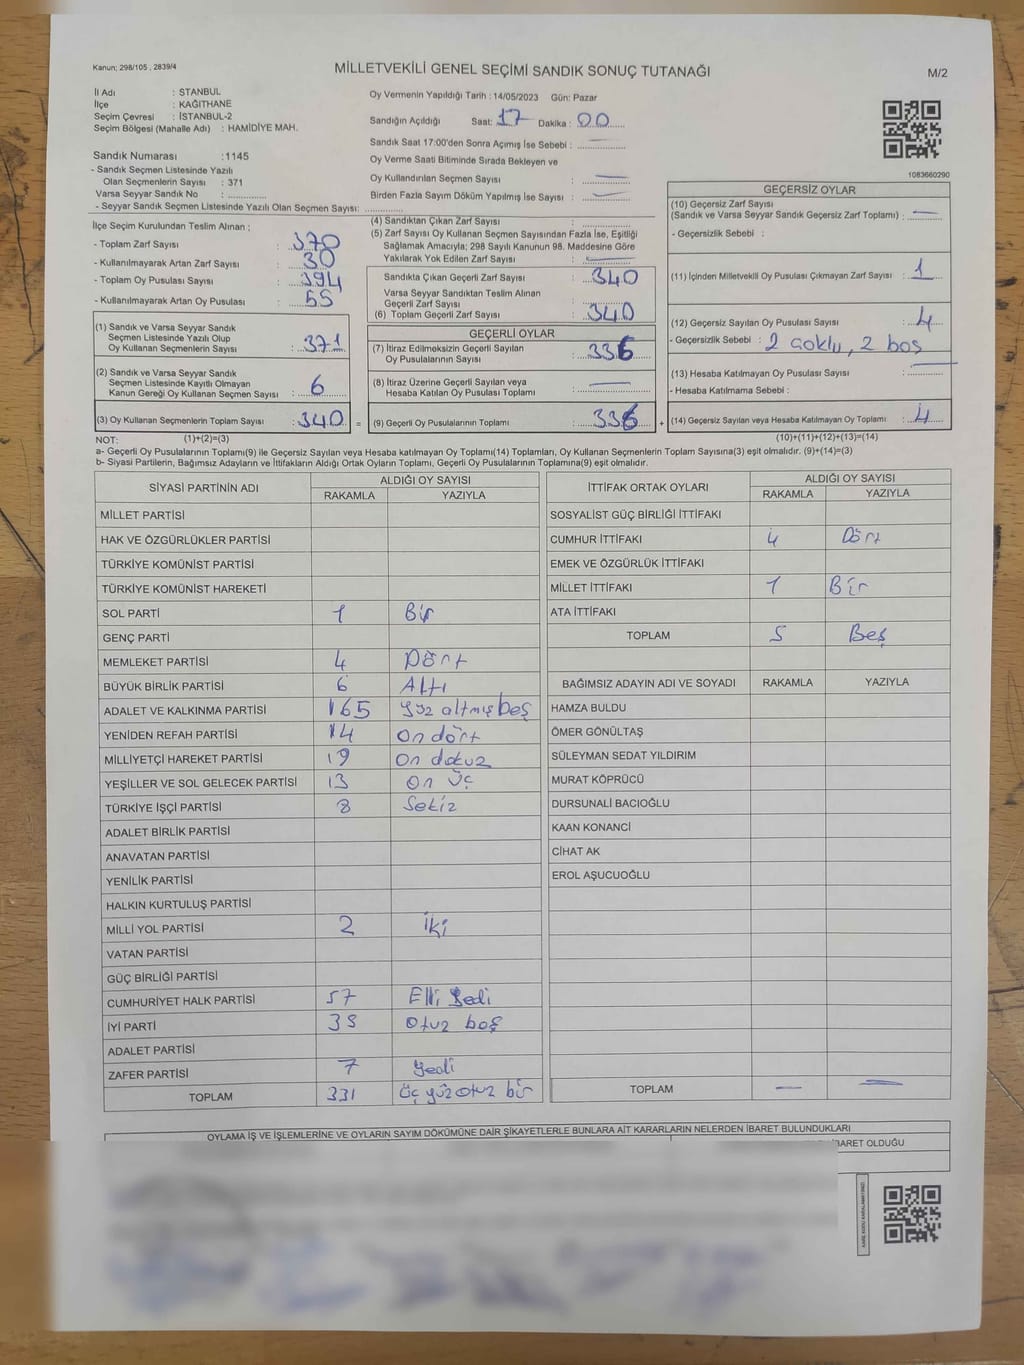 Kanun: 298/105 , 2839/4
MİLLETVEKİLİ GENEL SEÇİMİ SANDIK SONUÇ TUTANAĞI
M/2
İl Adı : STANBUL
İlçe : KAĞITHANE
Seçim Çevresi : İSTANBUL-2
Seçim Bölgesi (Mahalle Adı) : HAMİDİYE MAH.
Sandık Numarası :1145
- Sandık Seçmen Listesinde Yazılı
Olan Seçmenlerin Sayısı : 371
Varsa Seyyar Sandık No : ............
- Seyyar Sandık Seçmen Listesinde Yazılı Olan Seçmen Sayısı: ............
Oy Vermenin Yapıldığı Tarih : 14/05/2023 Gün: Pazar
Sandığın Açıldığı Saat: 17 Dakika : 00
Sandık Saat 17:00'den Sonra Açımış İse Sebebi : —
Oy Verme Saati Bitiminde Sırada Bekleyen ve
Oy Kullandırılan Seçmen Sayısı : —
Birden Fazla Sayım Döküm Yapılmış İse Sayısı : —
1083660290
İlçe Seçim Kurulundan Teslim Alınan ;
- Toplam Zarf Sayısı : 370
- Kullanılmayarak Artan Zarf Sayısı : 30
- Toplam Oy Pusulası Sayısı : 394
- Kullanılmayarak Artan Oy Pusulası : 55
(1) Sandık ve Varsa Seyyar Sandık
Seçmen Listesinde Yazılı Olup
Oy Kullanan Seçmenlerin Sayısı : 371
(2) Sandık ve Varsa Seyyar Sandık
Seçmen Listesinde Kayıtlı Olmayan
Kanun Gereği Oy Kullanan Seçmen Sayısı : 6
(3) Oy Kullanan Seçmenlerin Toplam Sayısı : 340 =
(4) Sandıktan Çıkan Zarf Sayısı :
(5) Zarf Sayısı Oy Kullanan Seçmen Sayısından Fazla İse, Eşitliği
Sağlamak Amacıyla; 298 Sayılı Kanunun 98. Maddesine Göre
Yakılarak Yok Edilen Zarf Sayısı : —
Sandıkta Çıkan Geçerli Zarf Sayısı : 340
Varsa Seyyar Sandıktan Teslim Alınan
Geçerli Zarf Sayısı :
(6) Toplam Geçerli Zarf Sayısı : 340
GEÇERLİ OYLAR
(7) İtiraz Edilmeksizin Geçerli Sayılan
Oy Pusulalarının Sayısı : 336
(8) İtiraz Üzerine Geçerli Sayılan veya
Hesaba Katılan Oy Pusulası Toplamı : —
(9) Geçerli Oy Pusulalarının Toplamı : 336 +
GEÇERSİZ OYLAR
(10) Geçersiz Zarf Sayısı
(Sandık ve Varsa Seyyar Sandık Geçersiz Zarf Toplamı) : —
- Geçersizlik Sebebi :
(11) İçinden Milletvekili Oy Pusulası Çıkmayan Zarf Sayısı : 1
(12) Geçersiz Sayılan Oy Pusulası Sayısı : 4
- Geçersizlik Sebebi : 2 çoklu, 2 boş
(13) Hesaba Katılmayan Oy Pusulası Sayısı : —
- Hesaba Katılmama Sebebi :
(14) Geçersiz Sayılan veya Hesaba Katılmayan Oy Toplamı : 4
NOT: (1)+(2)=(3)
(10)+(11)+(12)+(13)=(14)
a- Geçerli Oy Pusulalarının Toplamı(9) ile Geçersiz Sayılan veya Hesaba katılmayan Oy Toplamı(14) Toplamları, Oy Kullanan Seçmenlerin Toplam Sayısına(3) eşit olmalıdır. (9)+(14)=(3)
b- Siyasi Partilerin, Bağımsız Adayların ve İttifakların Aldığı Ortak Oyların Toplamı, Geçerli Oy Pusulalarının Toplamına(9) eşit olmalıdır.
SİYASİ PARTİNİN ADI ALDIĞI OY SAYISI
RAKAMLA YAZIYLA
MİLLET PARTİSİ
HAK VE ÖZGÜRLÜKLER PARTİSİ
TÜRKİYE KOMÜNİST PARTİSİ
TÜRKİYE KOMÜNİST HAREKETİ
SOL PARTİ 1 Bir
GENÇ PARTİ
MEMLEKET PARTİSİ 4 Dört
BÜYÜK BİRLİK PARTİSİ 6 Altı
ADALET VE KALKINMA PARTİSİ 165 yüz altmış beş
YENİDEN REFAH PARTİSİ 14 On dört
MİLLİYETÇİ HAREKET PARTİSİ 19 On dokuz
YEŞİLLER VE SOL GELECEK PARTİSİ 13 On üç
TÜRKİYE İŞÇİ PARTİSİ 8 Sekiz
ADALET BİRLİK PARTİSİ
ANAVATAN PARTİSİ
YENİLİK PARTİSİ
HALKIN KURTULUŞ PARTİSİ
MİLLİ YOL PARTİSİ 2 İki
VATAN PARTİSİ
GÜÇ BİRLİĞİ PARTİSİ
CUMHURİYET HALK PARTİSİ 57 Elli yedi
İYİ PARTİ 35 Otuz beş
ADALET PARTİSİ
ZAFER PARTİSİ 7 Yedi
TOPLAM 331 Üç yüz otuz bir
İTTİFAK ORTAK OYLARI ALDIĞI OY SAYISI
RAKAMLA YAZIYLA
SOSYALİST GÜÇ BİRLİĞİ İTTİFAKI
CUMHUR İTTİFAKI 4 Dört
EMEK VE ÖZGÜRLÜK İTTİFAKI
MİLLET İTTİFAKI 1 Bir
ATA İTTİFAKI
TOPLAM 5 Beş
BAĞIMSIZ ADAYIN ADI VE SOYADI RAKAMLA YAZIYLA
HAMZA BULDU
ÖMER GÖNÜLTAŞ
SÜLEYMAN SEDAT YILDIRIM
MURAT KÖPRÜCÜ
DURSUNALİ BACIOĞLU
KAAN KONANCİ
CİHAT AK
EROL AŞUCUOĞLU
TOPLAM — —
OYLAMA İŞ VE İŞLEMLERİNE VE OYLARIN SAYIM DÖKÜMÜNE DAİR ŞİKAYETLERLE BUNLARA AİT KARARLARIN NELERDEN İBARET BULUNDUKLARI
İBARET OLDUĞU